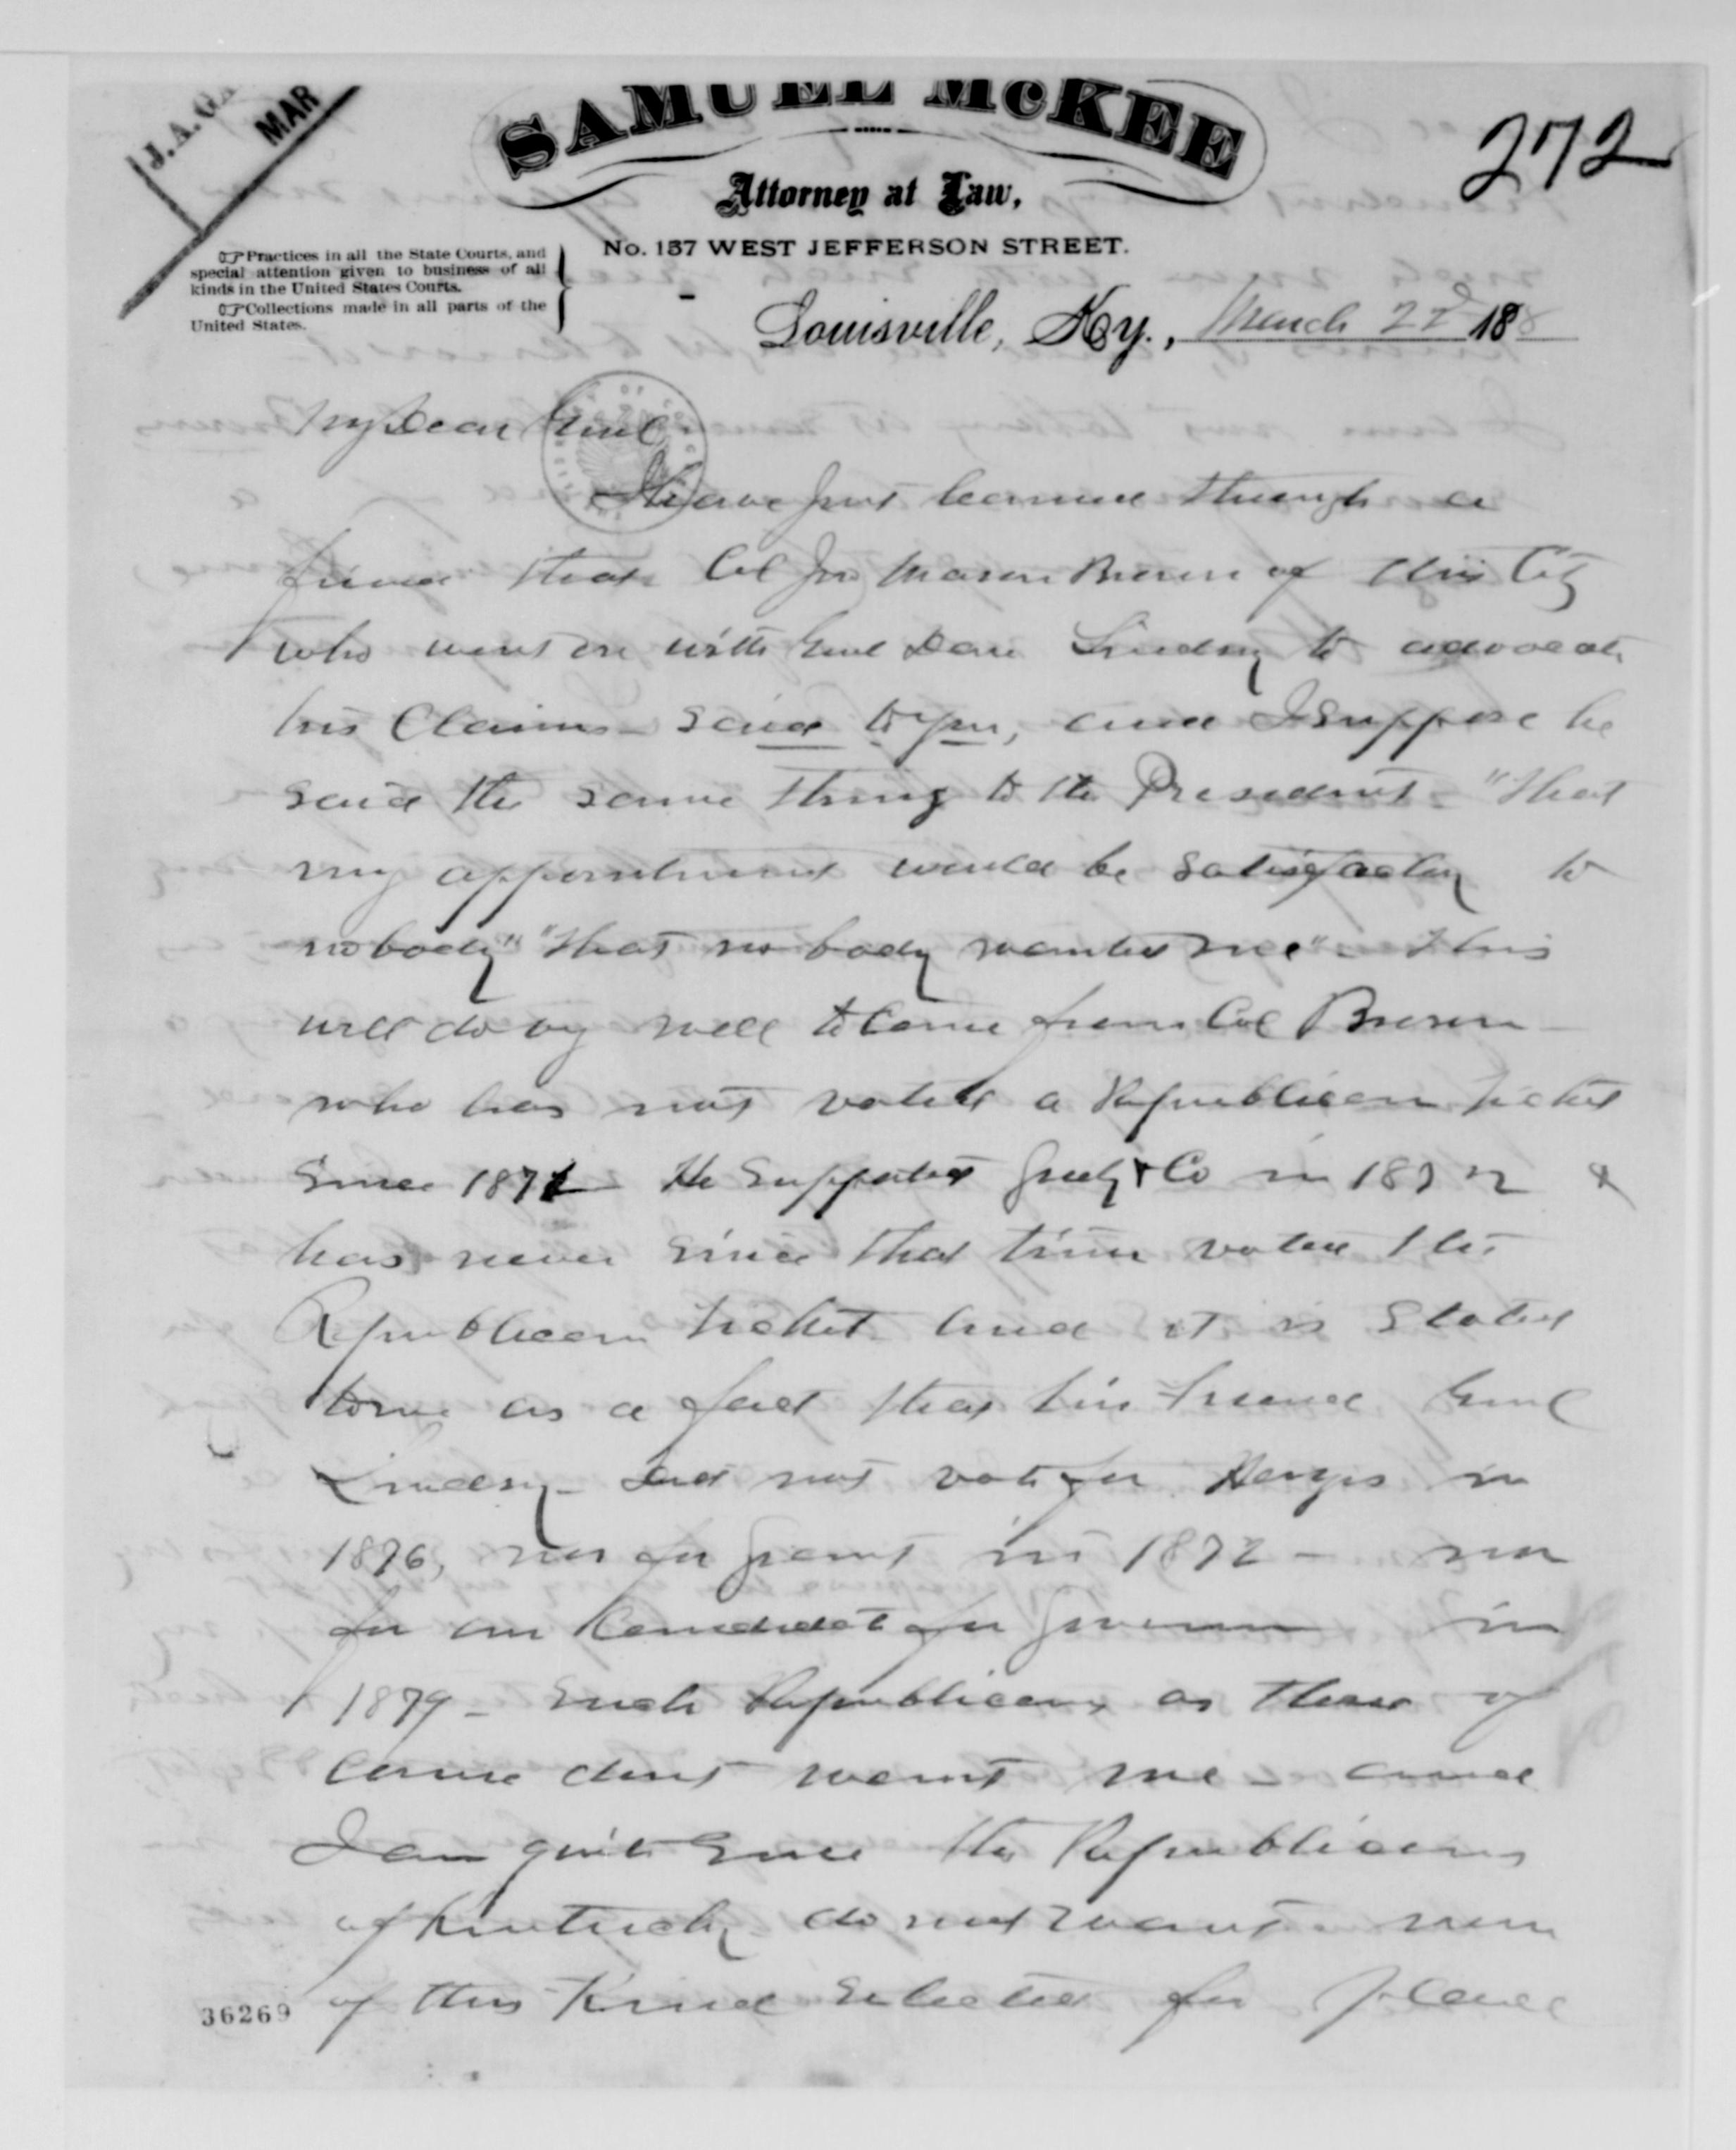 J. A. G.
MAR
272
SAMUEL McKEE
Attorney at Law,
No. 157 WEST JEFFERSON STREET.
Practices in all the State Courts, and
special attention given to business of all
kinds in the United States Courts.
Collections made in all parts of the
United States.
Louisville, Ky., March 22d 188
My Dear Genl
I have just learned through a
friend that Col Jno Mason Brown of this City
who went on with Genl Dan Lindsey to advocate
his Claims - said to you, and I suppose he
said the same thing to the President - "that
my appointment would be satisfactory to
nobody" "that no body wanted me" - this
will do very well to come from Col Brown
who has not voted a Republican ticket
since 1871 He supported Greely & Co in 1872 &
has never since that time voted the
Republican ticket and it is stated
to me as a fact that his friend Genl
Lindsey - did not vote for Hayes in
1876, nor for Grant in 1872 - nor
for our Candidate for Governor in
1879 - such Republicans as these of
course dont want me - and
I am quite sure the Republicans
of Kentucky do not want men
of this Kind selected for place
36269